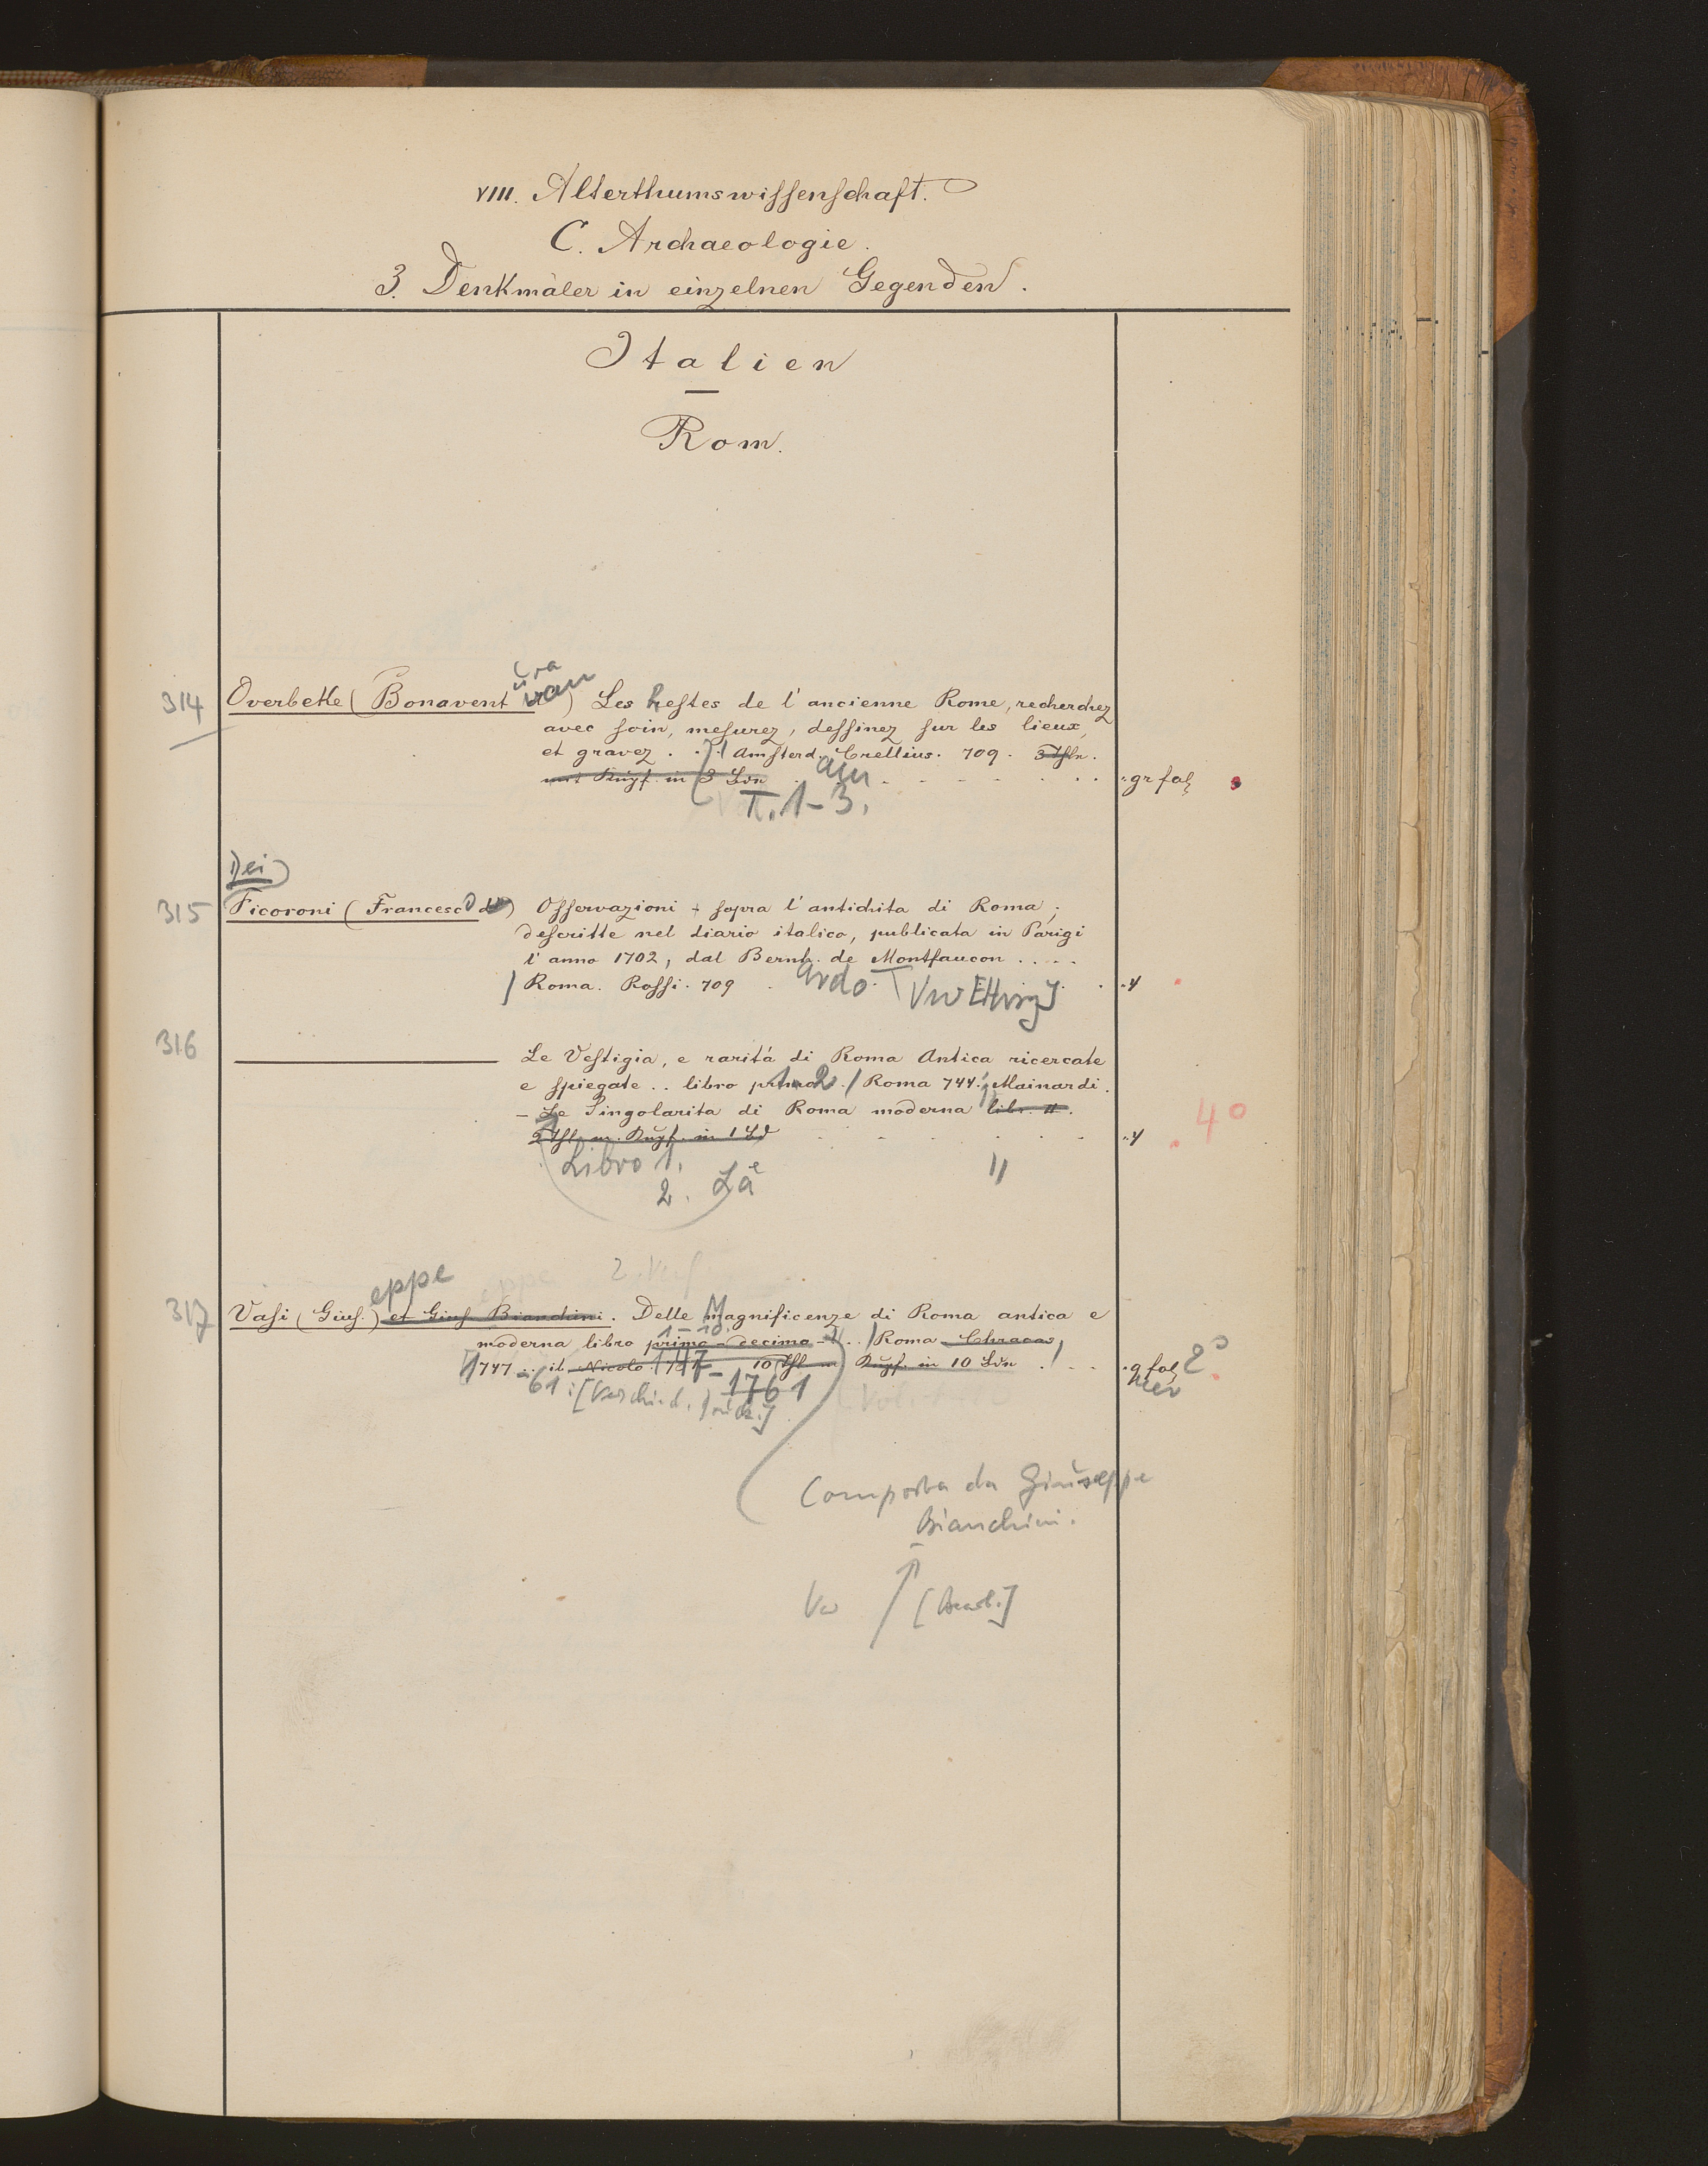 VIII. Alterthumswissenschaft.
C. Archaeologie.
3. Denkmäler in einzelnen Gegenden.
Italien
Rom.
314 Overbeke (Bonavent ura van) Les Restes de l'ancienne Rome, recherchez
avec soin, mesurez, dessinez sur les lieux,
et gravez . . . / Amsterd. Crellius. 709. 3 Thle.
mit Kupf. in 3 Bdn am gr fol
T. 1-3.
Dei
315 Ficoroni (Francesco de) Osservazioni sopra l'antichita di Roma;
descritte nel diario italico, publicata in Parigi
l'anno 1702, dal Bernh. de Montfaucon . . . .
ardo
/ Roma. Rossi. 709 4
316 Le Vestigia, e raritá di Roma Antica ricercate
e spiegate . . libro primo 1-2. / Roma 744. Mainardi.
- Le Singolarita di Roma moderna libr. II.
2 Thl m. Kupf. in 1 Bd 4 4°
Libro 1.
2. Le
eppe
317 Vasi (Gius.) et Gius Bianchini. Delle Magnificenze di Roma antica e
1-10
moderna libro primo - decimo . . / Roma Chracas,
1747 - ib Nicolo 10 Thl m Kupf. in 10 Bdn . . . g fol 2°
61 : [Verschied. 1747-1761
Composta da Giuseppe
Bianchini.